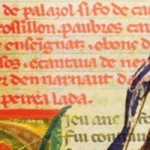 de palazol si fo de ca
rossillon. paubres ca
enseignatz. e bone d
sos. e cantaua de ne
er den narnaut d
peirẽa lada.
Ieu ane
fui com